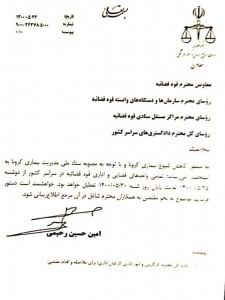 تاریخ ۱۴۰۰/۰۵/۲۳
شماره ۹۰۰۰/۲۲۳۶۸/۵۰۰۰
پیوست
قوه قضائیه
معاونین محترم قوه قضائیه
رؤسای محترم سازمان‌ها و دستگاه‌های وابسته قوه قضائیه
رؤسای محترم مراکز مستقل ستادی قوه قضائیه
رؤسای کل محترم دادگستری‌های سراسر کشور
سلام علیکم
به منظور کاهش شیوع بیماری کرونا و با توجه به مصوبه ستاد ملی مدیریت بیماری کرونا به
استحضار می‌رساند: تمامی واحدهای قضایی و اداری قوه قضائیه در سراسر کشور از دوشنبه
۱۴۰۰/۰۵/۲۵ لغایت پایان روز شنبه ۱۴۰۰/۰۵/۳۰ تعطیل خواهد بود. خواهشمند است دستور
فرمایید موضوع به نحو مقتضی به همکاران محترم شاغل در آن مرجع اطلاع‌رسانی شود.
امین حسین رحیمی
رونوشت:
اداره کل محترم کارگزینی و امور اداری کارکنان اداری برای ملاحظه و اقدام مقتضی.